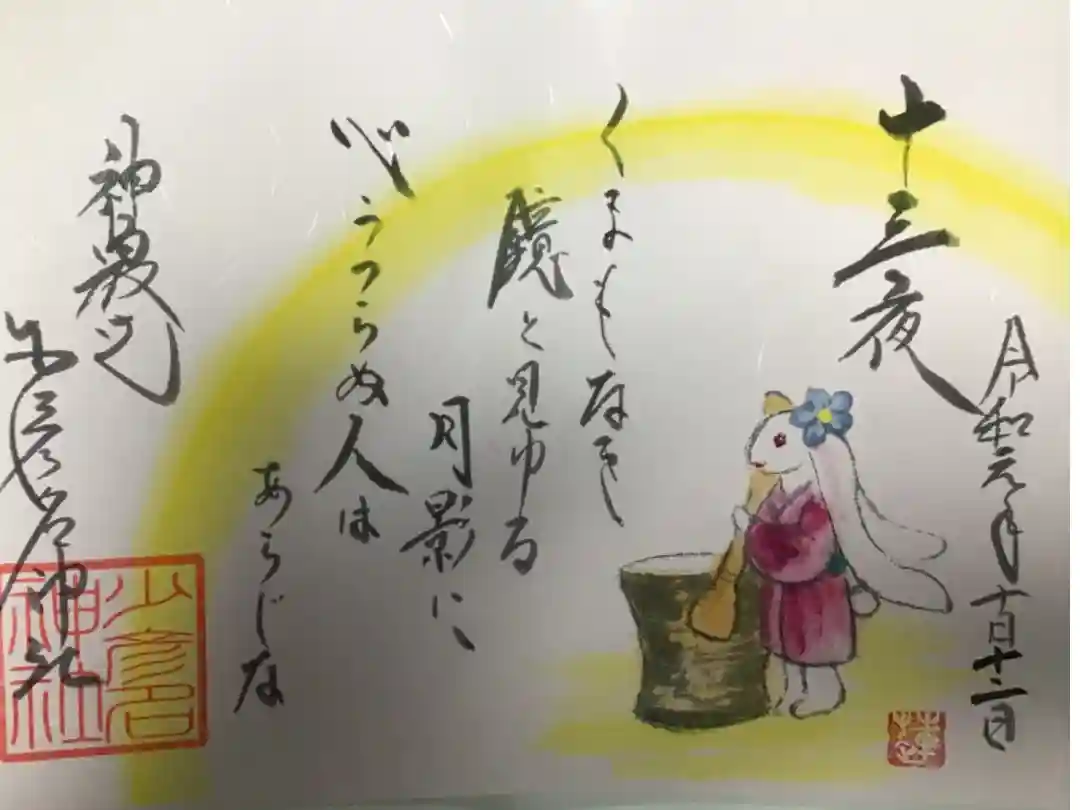 令和元年十月十二日
十三夜
くまもなき
鏡と見ゆる
月影に
心うつらぬ人は
あらじな
少彦名神社
少彦名神社